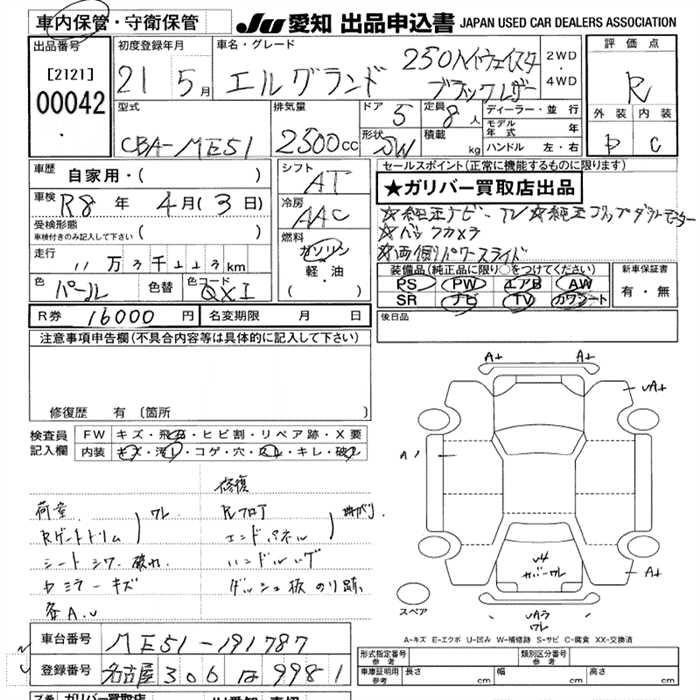 車内保管・守衛保管
JU 愛知 出品申込書 JAPAN USED CAR DEALERS ASSOCIATION
出品番号
[2121]
00042
初度登録年月
21 5月
車名・グレード
エルグランド 250ハイウェイスター
ブラックレザー
2WD
4WD
評価点
R
外装 内装
D C
型式
CBA-ME51
排気量
2500cc
ドア
5
定員
8人
形状
積載
kg
ディーラー・並行
モデル年式 年
ハンドル 左・右
車歴
自家用・( )
車検
R8年 4月(3日)
受検形態
車検付きのみ記入して下さい ( )
走行
11万3千 km
色 パール 色替 色コード QX1
シフト
AT
冷房
AAC
燃料
ガソリン
軽・油
( )
セールスポイント(正常に機能するものに限ります)
★ガリバー買取店出品
☆純正ナビ-TV
☆バックカメラ
☆両側パワースライド
装備品(純正品に限り○をつけてください)
PS PW エアB AW
SR ナビ TV カワシート
新車保証書
有・無
R券 16000円 名変期限 月 日
後日品
注意事項申告欄(不具合内容等は具体的に記入して下さい)
修復歴 有 [箇所 ]
検査員
記入欄
FW キズ・飛石・ヒビ割・リペア跡・X要
内装 キズ・汚れ・コゲ・穴・スレ・キレ・破レ
修復
荷室
Rゲートトリム
ワレ
シート シワ 破れ
カミラー キズ
Rフロア
エンドパネル
曲がり
ダッシュ板 のり跡
A+ A+
vA+
A'
A+
v4
ガバーワレ
vA3
ワレ
スペア
A-キズ E-エクボ U-凹み W-補修跡 S-サビ C-腐食 XX-交換済
車台番号
ME51-191787
登録番号
名古屋 306 は 9981
形式指定番号
参考
類別区分番号
参考
車庫証明用
参考
長さ cm 幅 cm 高さ cm
ガリバー買取店
JU愛知